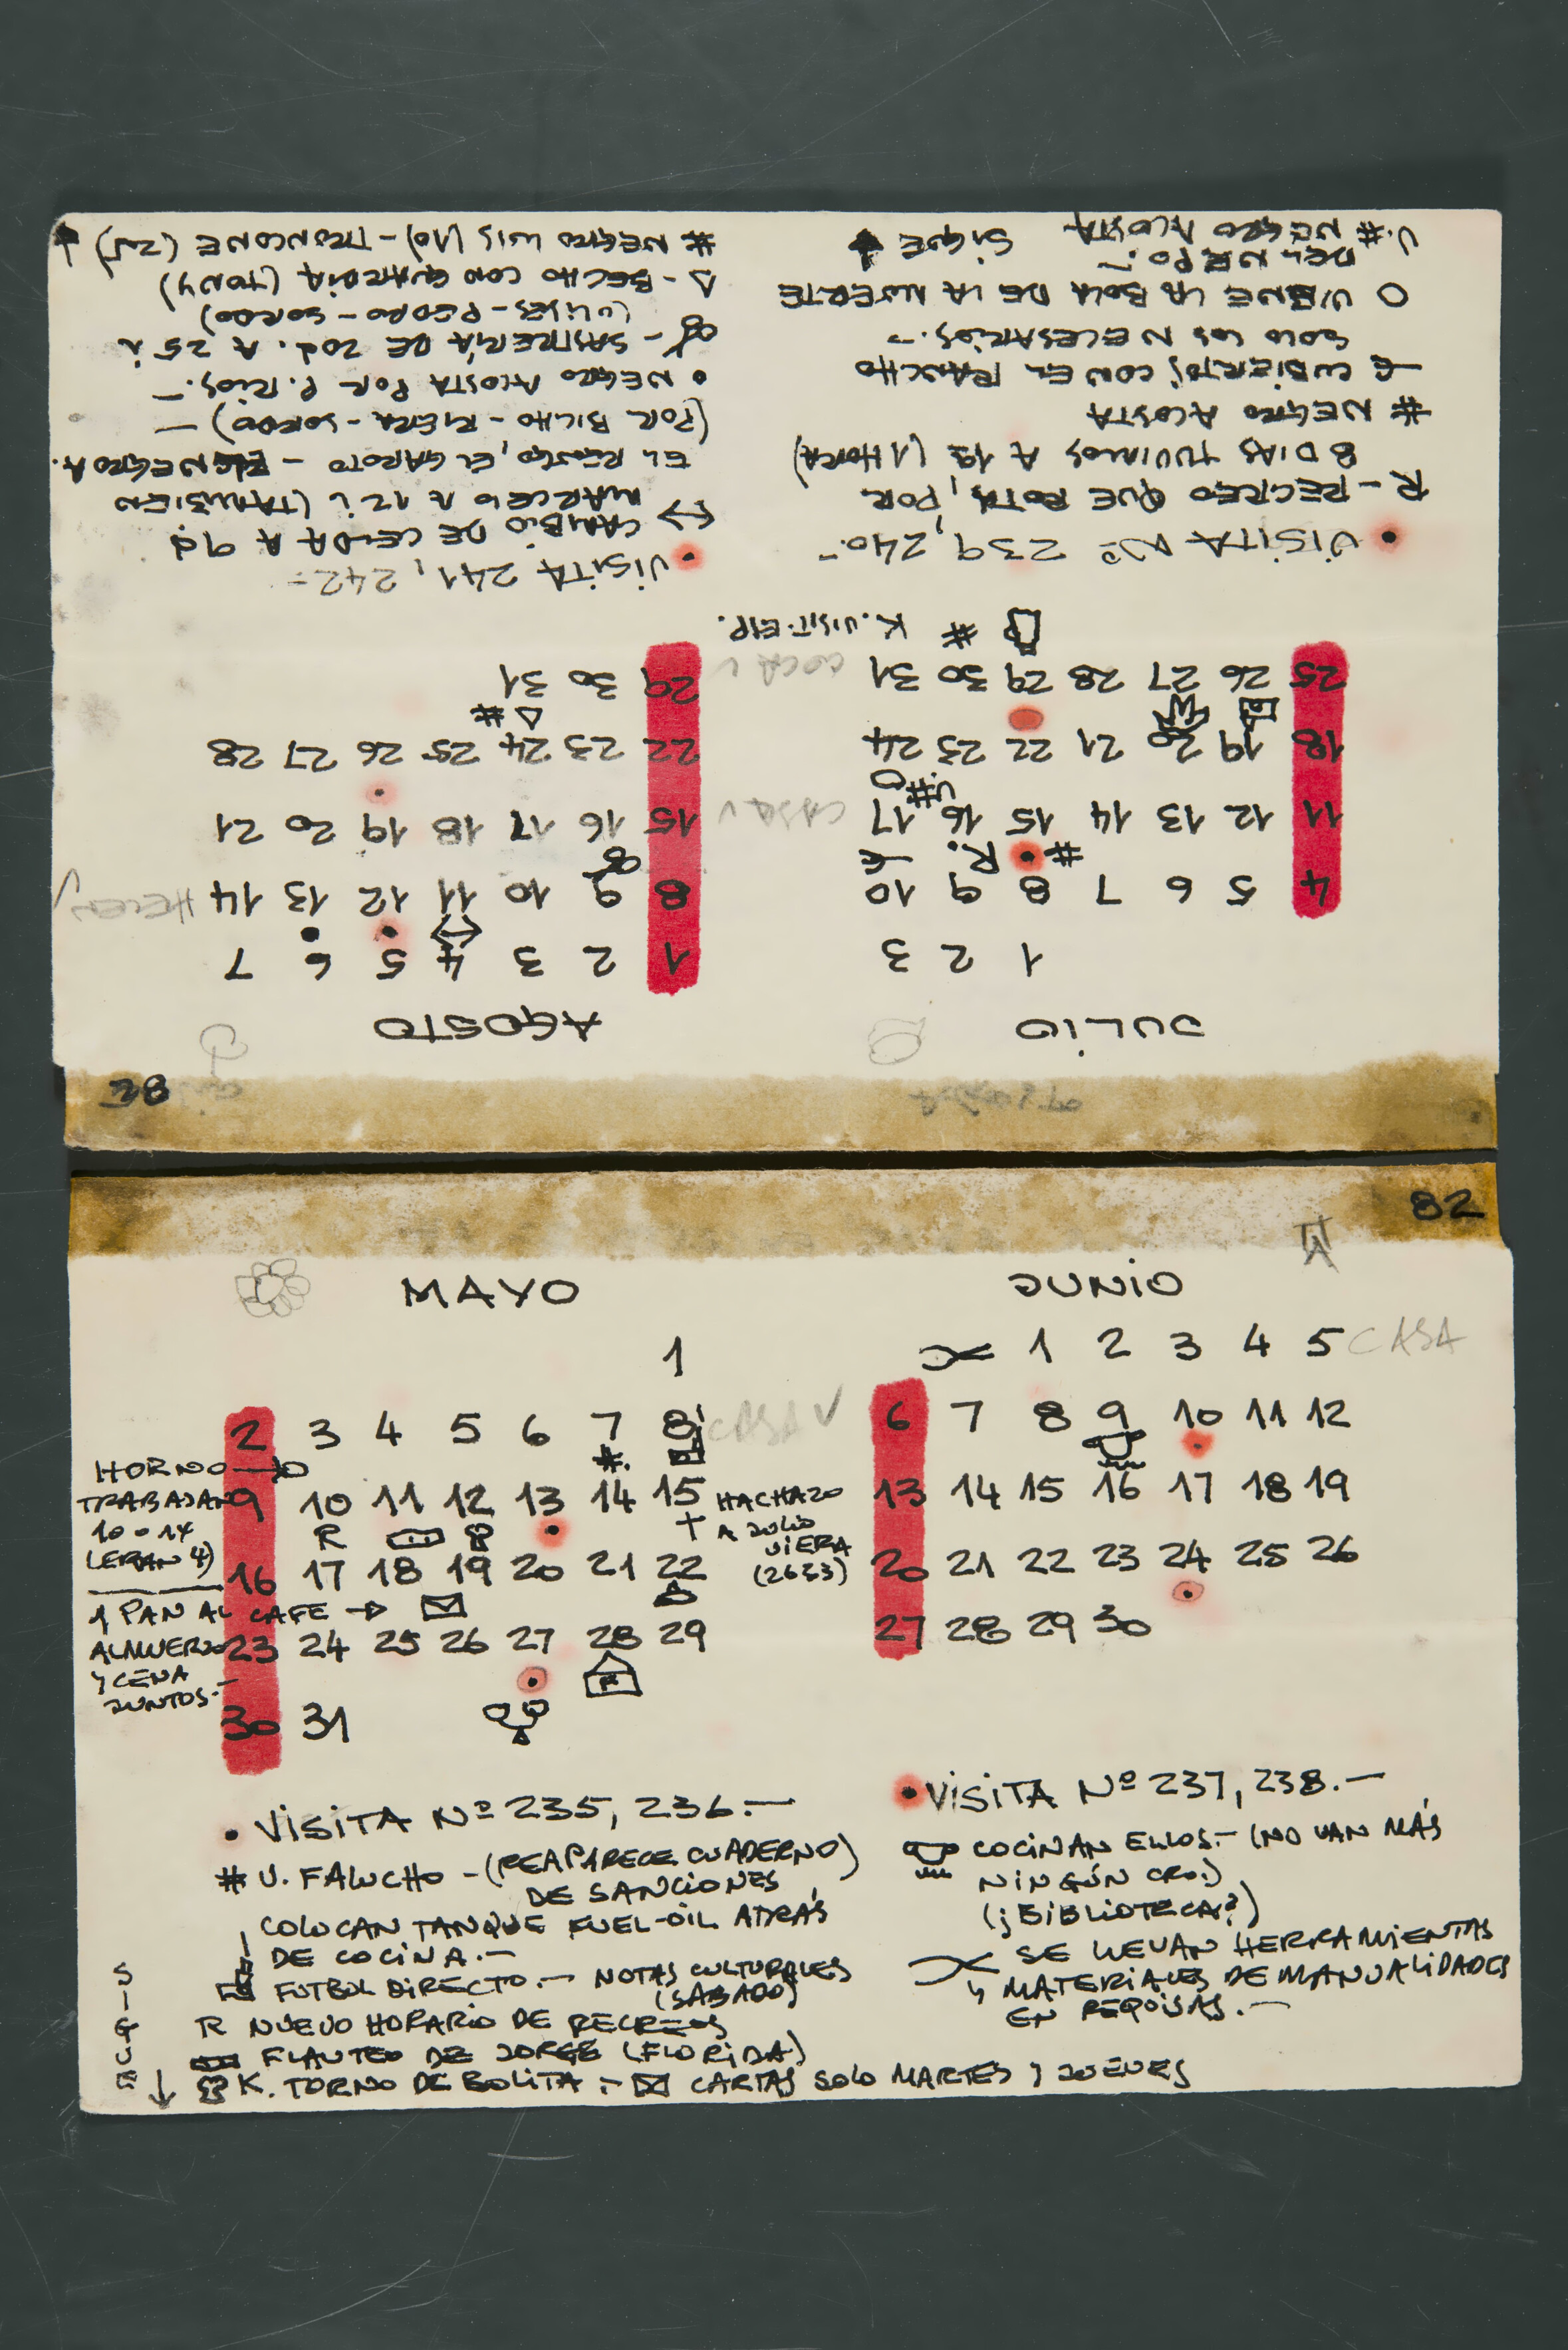 82
MAYO
1
2 3 4 5 6 7 8 CASA V
HORNO
TRABAJAN 9 10 11 12 13 14 15 HACHAZO
10 o 14 R A JULIO
(LEBAN 4) VIERA
16 17 18 19 20 21 22 (2633)
1 PAN AL CAFE
ALMUERZO 23 24 25 26 27 28 29
Y CENA
JUNTOS.-
30 31
• VISITA Nº 235, 236.—
# U. FALUCHO - (REAPARECE CUADERNO)
DE SANCIONES
COLOCAN TANQUE FUEL-OIL ATRÁS
DE COCINA.—
FUTBOL DIRECTO.— NOTAS CULTURALES
(SABADO)
R NUEVO HORARIO DE RECREOS
FLAUTEO DE JORGE (FLORIDA)
K. TORNO DE BOLITA.- CARTAS SOLO MARTES Y JUEVES
SIGUE ↓
JUNIO
1 2 3 4 5 CASA
6 7 8 9 10 11 12
13 14 15 16 17 18 19
20 21 22 23 24 25 26
27 28 29 30
• VISITA Nº 237, 238.—
COCINAN ELLOS.— (NO VAN MÁS
NINGÚN CRO.)
(¿BIBLIOTECA?)
SE LLEVAN HERRAMIENTAS
Y MATERIALES DE MANUALIDADES
EN REQUISAS.—
82
JULIO
1 2 3
4 5 6 7 8 9 10
# R.
11 12 13 14 15 16 17 CASA V
U#
18 19 20 21 22 23 24
25 26 27 28 29 30 31 COCA V
# K. VISIT. ESP.
• VISITA Nº 239, 240.-
R - RECREO QUE ROTA, POR
8 DIAS TUVIMOS A 19 (1 HORA)
# NEGRO ACOSTA
CUBIERTOS CON EL RANCHO
SOLO LOS NECESARIOS.-
O VIENE LA BOLA DE LA MUERTE
DEL NEPO.-
U.# NEGRO ACOSTA SIGUE
AGOSTO
1 2 3 4 5 6 7
8 9 10 11 12 13 14
15 16 17 18 19 20 21
22 23 24 25 26 27 28
#
29 30 31
• VISITA 241, 242-
↔ CAMBIO DE CELDA A 9 d
MARCELO A 12 i (TAMBIEN
EL RENGO, EL GAROTO - EL NEGRO A.
(POR BICHO - RIERA - SORDO) —
• NEGRO ACOSTA POR P. RIOS.—
- SASTRERÍA DE 20d. A 25 i
(ULISES - PEDRO - SORDO)
△ - BECHO CON GUARDIA (TONY)
# NEGRO LUIS (10) - TRONCONE (25)